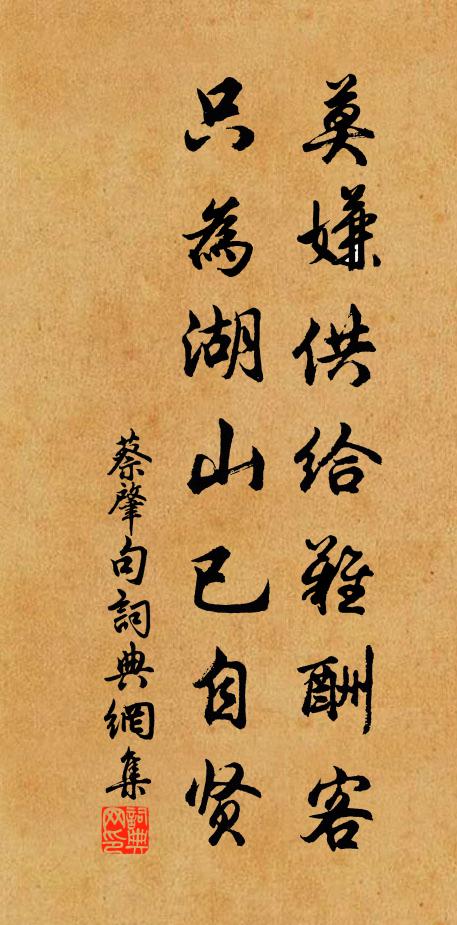 莫嫌供给难酬客
只為湖山已自贤
蔡肇句詞典網集
詞典網印